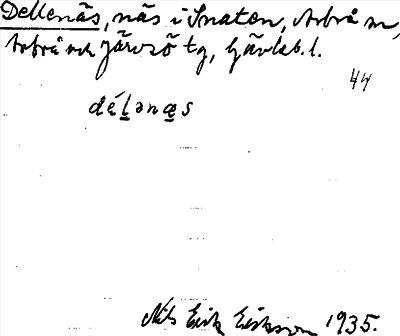 Dellenäs, näs i Snaten, Arbrå sn,
Arbrå och Järvsö tg, Gävleb. l.
44
dé̱ḻənæ̱s
Nils Erik Eriksson 1935.